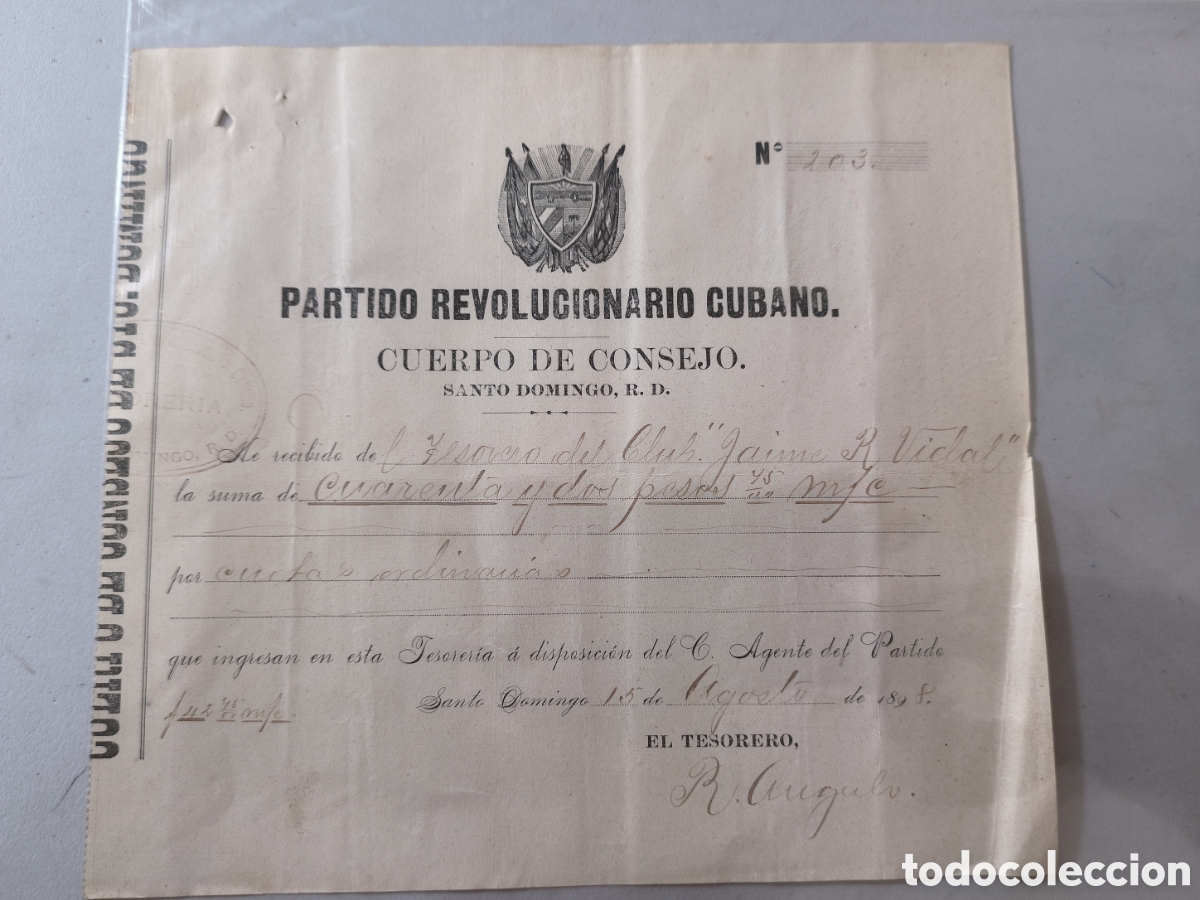 Nº 203.
PARTIDO REVOLUCIONARIO CUBANO.
CUERPO DE CONSEJO.
SANTO DOMINGO, R. D.
He recibido del Tesorero del Club "Jaime R. Vidal"
la suma de cuarenta y dos pesos 75 m/c
por cuotas ordinarias
que ingresan en esta Tesorería á disposición del C. Agente del Partido
Santo Domingo 15 de Agosto de 1898.
$42 75 m/c
EL TESORERO,
R. Angulo.
todocoleccion